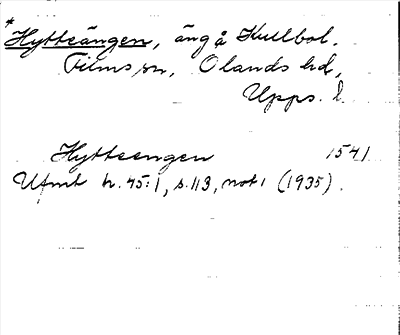 * Hytteängen, äng å Kullbol.
Films sn, Olands hd,
Upps. l.
Hytteengen 1541
Ufmt h. 45:1, s. 113, not 1 (1935).